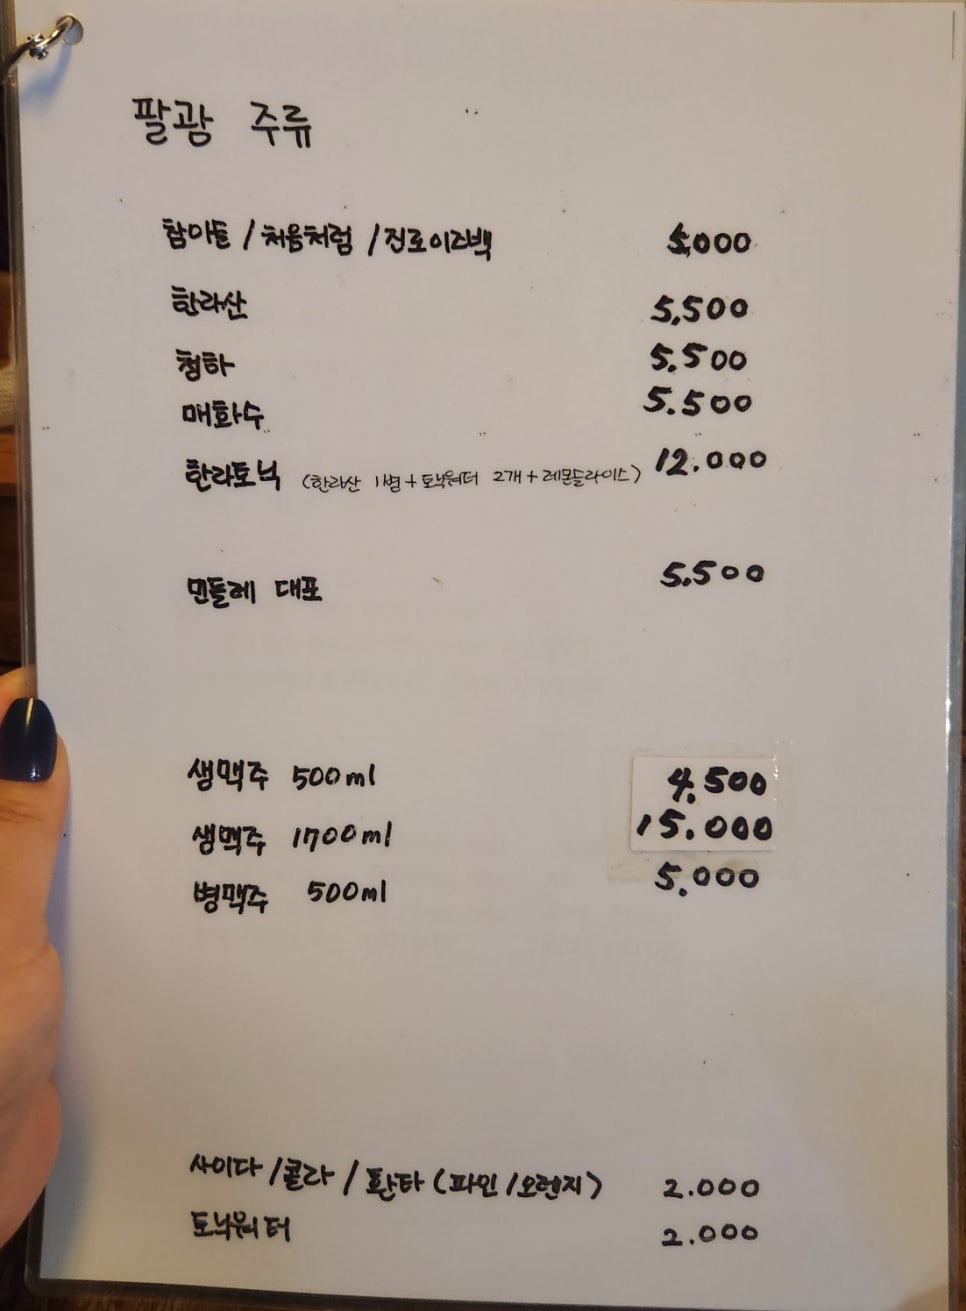 팔광 주류
참이슬 / 처음처럼 / 진로이즈백 5,000
한라산 5,500
청하 5.500
매화수 5.500
한라토닉 (한라산 1병 + 토닉워터 2개 + 레몬슬라이스) 12.000
민들레 대포 5.500
생맥주 500ml 4.500
생맥주 1700ml 15.000
병맥주 500ml 5.000
사이다 / 콜라 / 환타 (파인 / 오렌지) 2.000
토닉워터 2.000